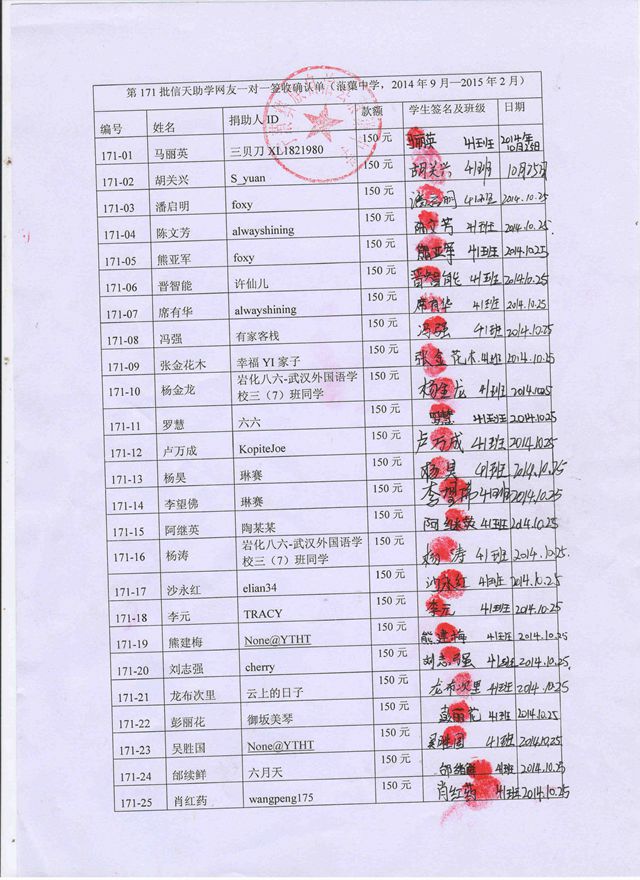 第 171 批信天助学网友一对一签收确认单（蒗蕖中学，2014 年 9 月—2015 年 2 月）
编号 姓名 捐助人 ID 款额 学生签名及班级 日期
171-01 马丽英 三贝刀 XL1821980 150 元 马丽英 41班 2014年10月25日
171-02 胡关兴 S_yuan 150 元 胡关兴 41班 10月25日
171-03 潘启明 foxy 150 元 潘启明 41班 2014.10.25
171-04 陈文芳 alwayshining 150 元 陈文芳 41班 2014.10.25.
171-05 熊亚军 foxy 150 元 熊亚军 41班 2014.10.25
171-06 晋智能 许仙儿 150 元 晋智能 41班 2014.10.25
171-07 席有华 alwayshining 150 元 席有华 41班 2014.10.25
171-08 冯强 有家客栈 150 元 冯强 41班 2014.10.25
171-09 张金花木 幸福 YI 家子 150 元 张金花木 41班 2014.10.25
171-10 杨金龙 岩化八六-武汉外国语学校三（7）班同学 150 元 杨金龙 41班 2014.10.25
171-11 罗慧 六六 150 元 罗慧 41班 2014.10.25
171-12 卢万成 KopiteJoe 150 元 卢万成 41班 2014.10.25
171-13 杨昊 琳赛 150 元 杨昊 41班 2014.10.25
171-14 李望佛 琳赛 150 元 李望佛 41班 2014.10.25
171-15 阿继英 陶某某 150 元 阿继英 41班 2014.10.25
171-16 杨涛 岩化八六-武汉外国语学校三（7）班同学 150 元 杨涛 41班 2014.10.25.
171-17 沙永红 elian34 150 元 沙永红 41班 2014.10.25
171-18 李元 TRACY 150 元 李元 41班 2014.10.25
171-19 熊建梅 None@YTHT 150 元 熊建梅 41班 2014.10.25
171-20 刘志强 cherry 150 元 刘志强 41班 2014.10.25.
171-21 龙布次里 云上的日子 150 元 龙布次里 41班 2014.10.25
171-22 彭丽花 御坂美琴 150 元 彭丽花 41班 2014.10.25
171-23 吴胜国 None@YTHT 150 元 吴胜国 41班 2014.10.25
171-24 邰续鲜 六月天 150 元 邰续鲜 41班 2014.10.25
171-25 肖红药 wangpeng175 150 元 肖红药 41班 2014.10.25